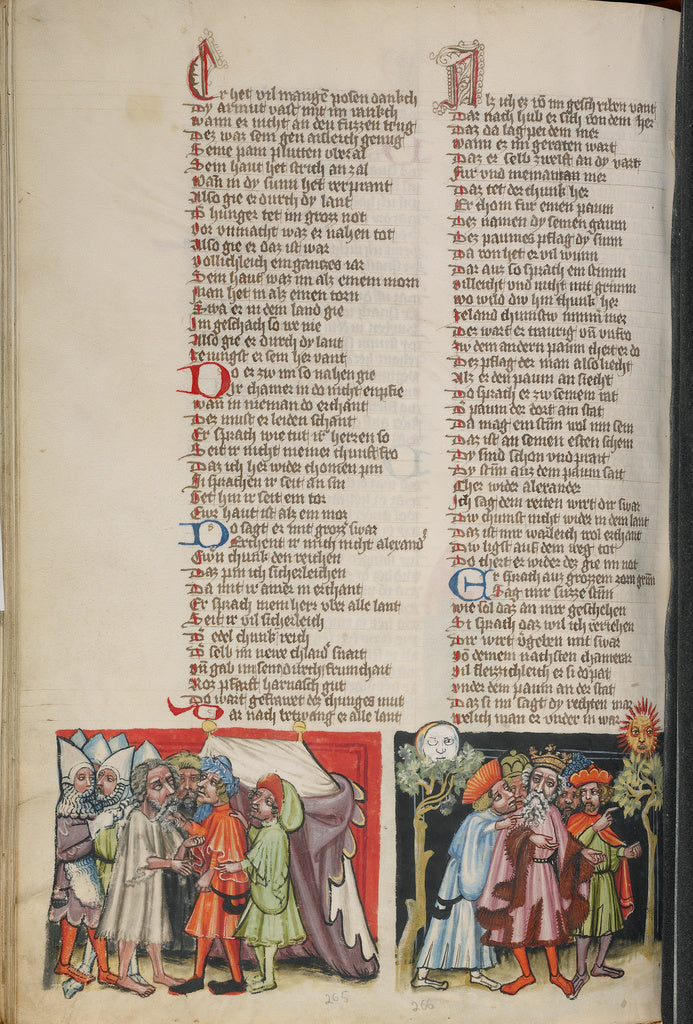 Er het vil mangē posen dankch
Dy armut vast mit im rankch
Wann er nicht an den fuzzen trug
Dez waz sein gen aisleich genug
Seine pain pluitten vberal
Sein haut het strich an zal
Wan in dy sunn het verprant
Also gie er durch dy lant
D hunger tet im groz not
Vor vnmacht waz er nahen tot
Also gie er daz ist war
Vollichleich ein gantzes iar
Sein haut waz im alz einem morn
Man het in alz einen torn
Swa er in dem land gie
Im geschach so we nie
Also gie er durch dy lant
er sein her vant
Do er zw im so nahen gie
Sir chamer in do nicht enpfie
Wan in nieman do erchant
Der must er leiden schant
Er sprach wie tut ir herren so
Seit ir nicht meiner chunft fro
Daz ich her wider chomen pin
Si sprachen ir seit an sin
Get hin ir seit ein tor
Ewr haut ist alz ein mor
Do sagt er mit grozz swar
Erchent ir mich nicht alexand
Ewn chunk den reichen
Daz pin ich sicherleichen
Da mit ir ainer in erchant
Er sprach mein herr vber alle lant
Seit ir vil sicherleich
Dv edel chunk reich
Dv selb im newe chlaid snait
Vn gab im sein durchfrumchait
Ros pfarft harnasch gut
Do wart gefrawet der chunges mut
Dar nach betwang er alle lant
Alz ich ez vō im geschriben vant
Dar nach hub er sich von dem her
Daz da lag pei dem mer
Wann ez im geraten wart
Daz er selb zwelft an dy vart
Fur vnd nieman mer
Daz tet der chunk her
Er chom fur einen paum
Dez namen dy seinen gaum
Dez paumes pflag dy sunn
Da von het er vil wunn
Dar auz so sprach ein stimm
Villeicht vnd nicht mit grimm
Wo wild dw hin chunk her
Ze land chumstw nimm mer
Dez wart er traurig vn vnfro
Zw dem andern paum chert er do
Dez pflag der man also liecht
Alz er den paum an siecht
Do sprach er zw seinem rat
D paum der dort am stat
Da mag ein stim wol inn sein
Daz ist an seinen esten schein
Dy sind schon vnd prait
Dy stim auz dem paum sait
Cher wider alexander
Ich sag dein reiten wirt dir swar
Dw chumst nicht wider in dein lant
Daz ist mir warleich wol erchant
Dw ligst auf dem weg tot
Do chert er wider dez gie im not
Er sprach auz grozzem zorn grim
Sag mir suzze stim
Wie sol daz an mir geschehen
Si sprach daz wil ich veriehen
Dir wirt vgeben mit swar
Vō deinem nachsten chamerar
Vil fleizzichleich er si do pat
Vnder dem paum an der stat
Daz si im sagt dy rechten mar
Welich man er vnder in war
265
266